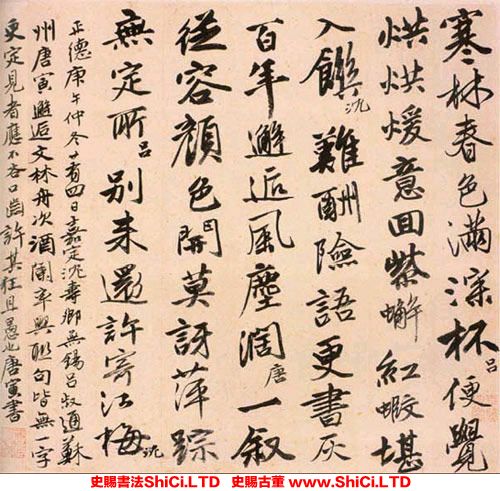 寒林春色滿深杯呂便覺
烘烘煖意回紫蠏紅蝦堪
入饌沈難酬險語更書灰
百年邂逅風塵濶唐一敘
從容顏色開莫訝萍踪
無定所呂別来還許寄江梅沈
正德庚午仲冬廿有四日嘉定沈壽卿無錫呂叔通蘇
州唐寅邂逅文林舟次酒闌率興聯句皆無一字
更定見者應不吝口齒許其狂且愚也唐寅書
史賜書法ShiCi.LTD 史賜古董 www.ShiCi.LTD